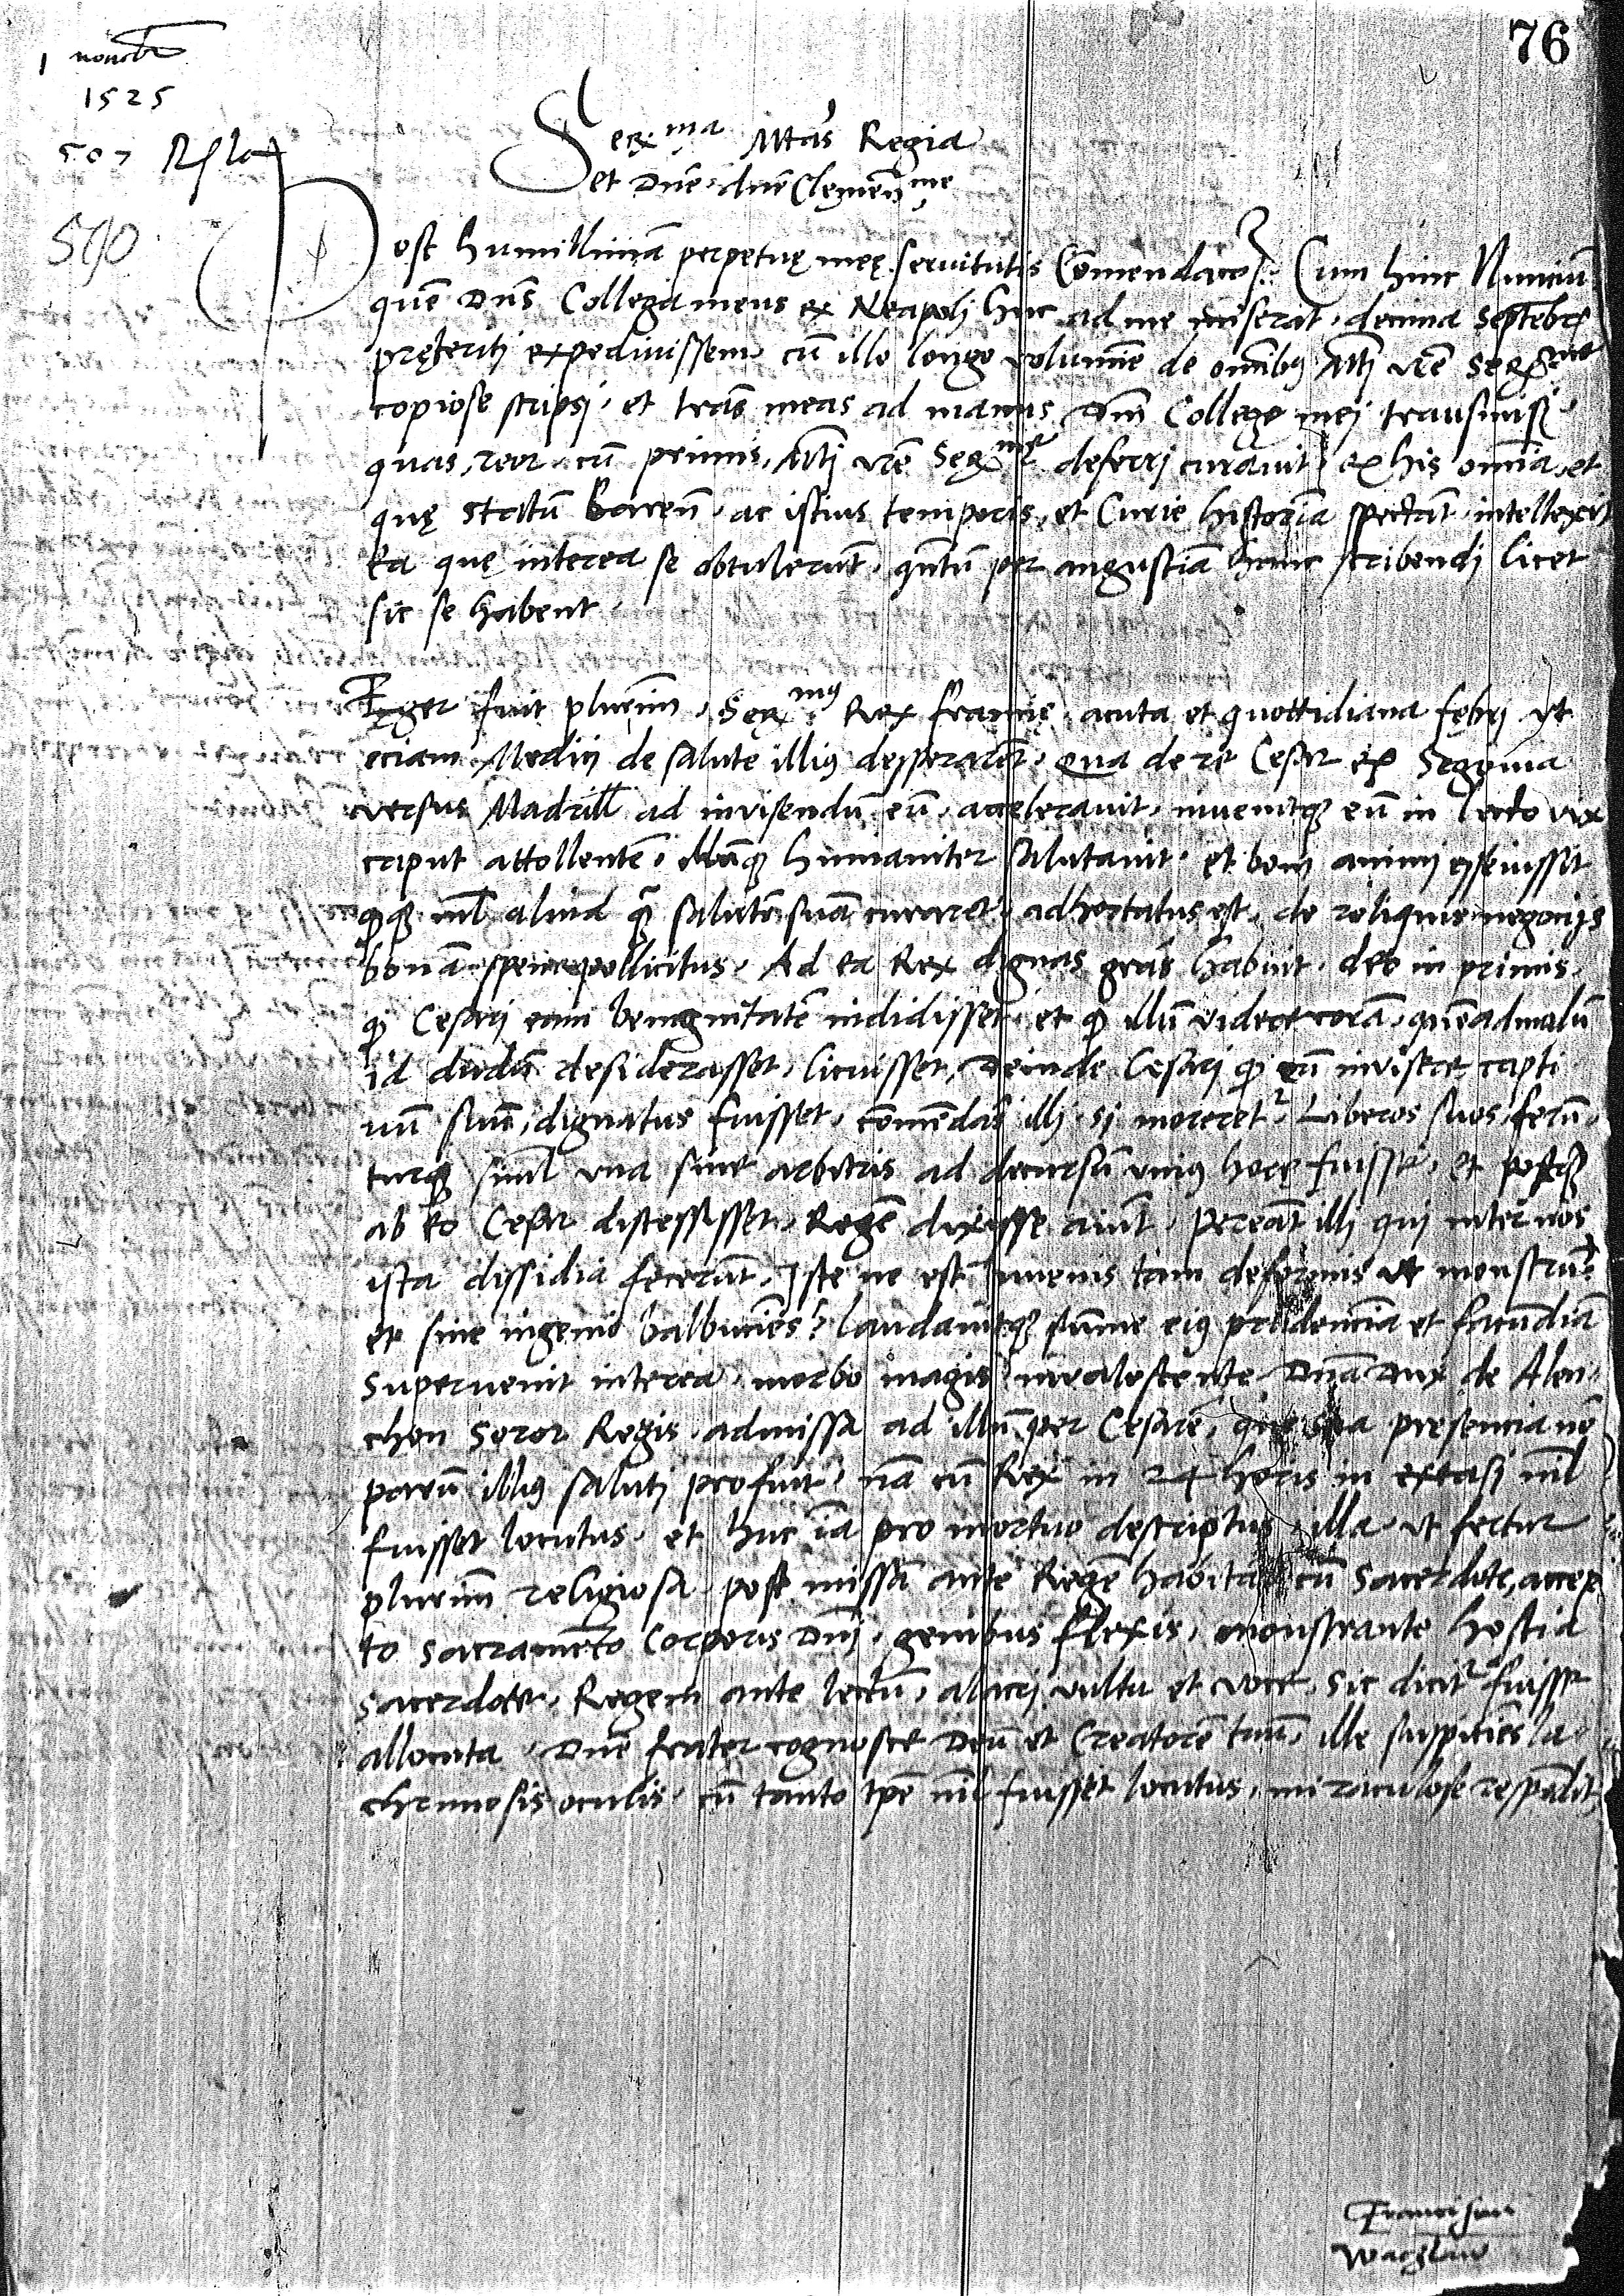 76
1 novembr
1525
507
590
Serma Mtas Regia
et Dne dne Clemenme
Post humillimam perpetuę meę servitutis Comendacos. Cum hinc Nuncium
quem Dns Collega meus ex Neapoli huc ad me miserat decima Septebr
pręteriti expedivissem, cu illo longo volumine de omnibus Mti vre Serme
copiose scripsi, et lras meas ad manus Dni Collegę mei transmisi
quas, reor, cu primis, Mti vre Serme deferri curavit, ex his omnia, et
quę statu Baren ac istius temporis, et Curie historia spectat intellexerit
Ea quę interea se obtulerut, qutu per angustia hanc scribendi licet
sic se habent
Eger fuit plurim, Sermus Rex francie, acuta et quottidiana febri ut
eciam Medici de salute illius desperaret, Qua de re Cesar ex Segovia
versus Madrill ad invisendu eu acceleravit, invenitque eu in lecto vix
caput attollente, illuque humaniter salutavit, et boni animi esse iussit
quodque nil aliud qua salute sua curaret, adhortatus est, de reliquis negociis
bona spem pollicitus. Ad ea Rex dignas gras habuit, deo in primis
quod Cesari eam benignitate indidisset, et quod illu videre cora, queadmodu
id dudu desiderasset, licuisset, Deinde Cesari quod eu invisere capti
vu suu, dignatus fuisset, comendas illi si moreret Liberos suos ferun
turque simul una sine arbitris ad decursu unius horę fuisse, et postque
ab eo Cesar discessisset, Rege dixisse aiut, Pereat illi qui inter nos
ista dissidia fecerut, Iste ne est Iuvenis tam deformis ut monstru
et sine ingenio balbuciens? Laudavitque summe eius prudencia et facundia
Supervenit interea, morbo magis invalescente Dna Dux de Alen
chon Soror Regis admissa ad illu per Cesare, que sua presencia no
paru illius saluti profuit, na cu Rex in 24 horis in extasi nil
fuisset locutus, et huc ia pro mortuo descriptus, illa ut fertur
plurim religiosa post missa ante Rege habita cu Sacerdote, accep
to Sacrameto Corporis Dni, genibus flexis, monstrante hostia
Sacerdote, Regem ante lectu, alacri vultu et voce, sic dicit fuisse
allocuta, Dne frater cognosce Deu et Creatore tuu, ille suspiciens la
chrimosis oculis, cu tanto tpe nil fuisset locutus, miraculose respodit